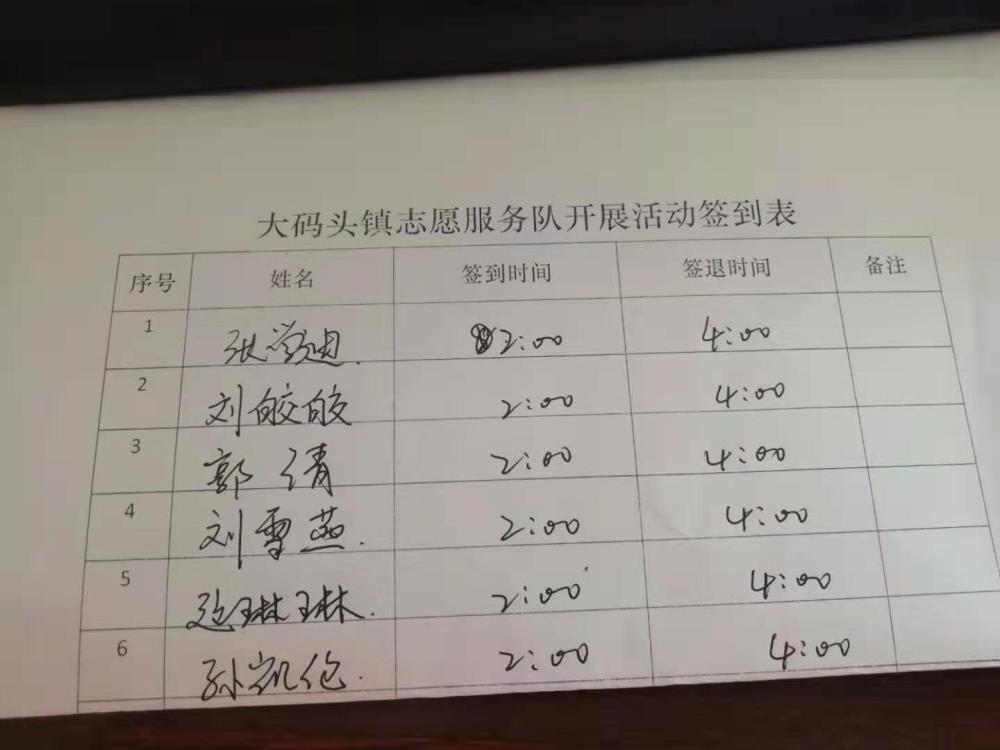 大码头镇志愿服务队开展活动签到表
序号 姓名 签到时间 签退时间 备注
1 张学迪. 2:00 4:00
2 刘皎皎 2:00 4:00
3 郭清 2:00 4:00
4 刘雪燕. 2:00 4:00
5 赵琳琳. 2:00 4:00
6 孙凯伦. 2:00 4:00